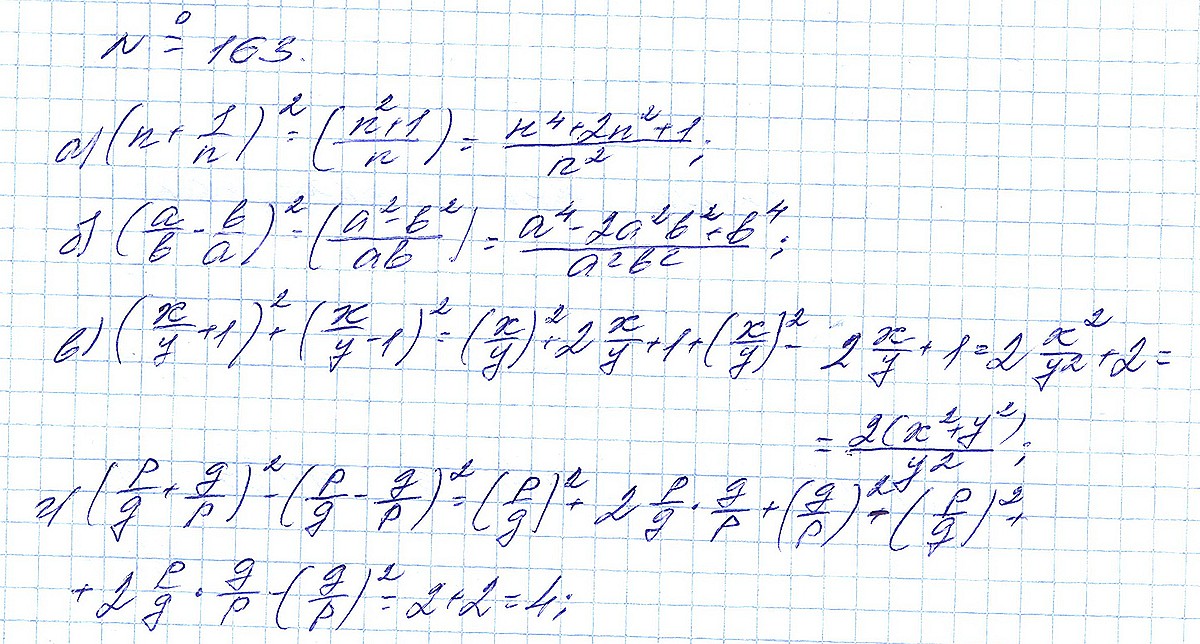 № 163.
а) (n + 1/n)² = (n²+1/n) = n⁴+2n²+1/n²;
б) (a/b - b/a)² = (a²-b²/ab) = a⁴-2a²b²+b⁴/a²b²;
в) (x/y + 1)² + (x/y - 1)² = (x/y)² + 2 x/y + 1 + (x/y)² - 2 x/y + 1 = 2 x²/y² + 2 =
= 2(x²+y²)/y²;
г) (p/g + g/p)² - (p/g - g/p)² = (p/g)² + 2 p/g · g/p + (g/p)² - (p/g)² +
+ 2 p/g · g/p - (g/p)² = 2+2 = 4;